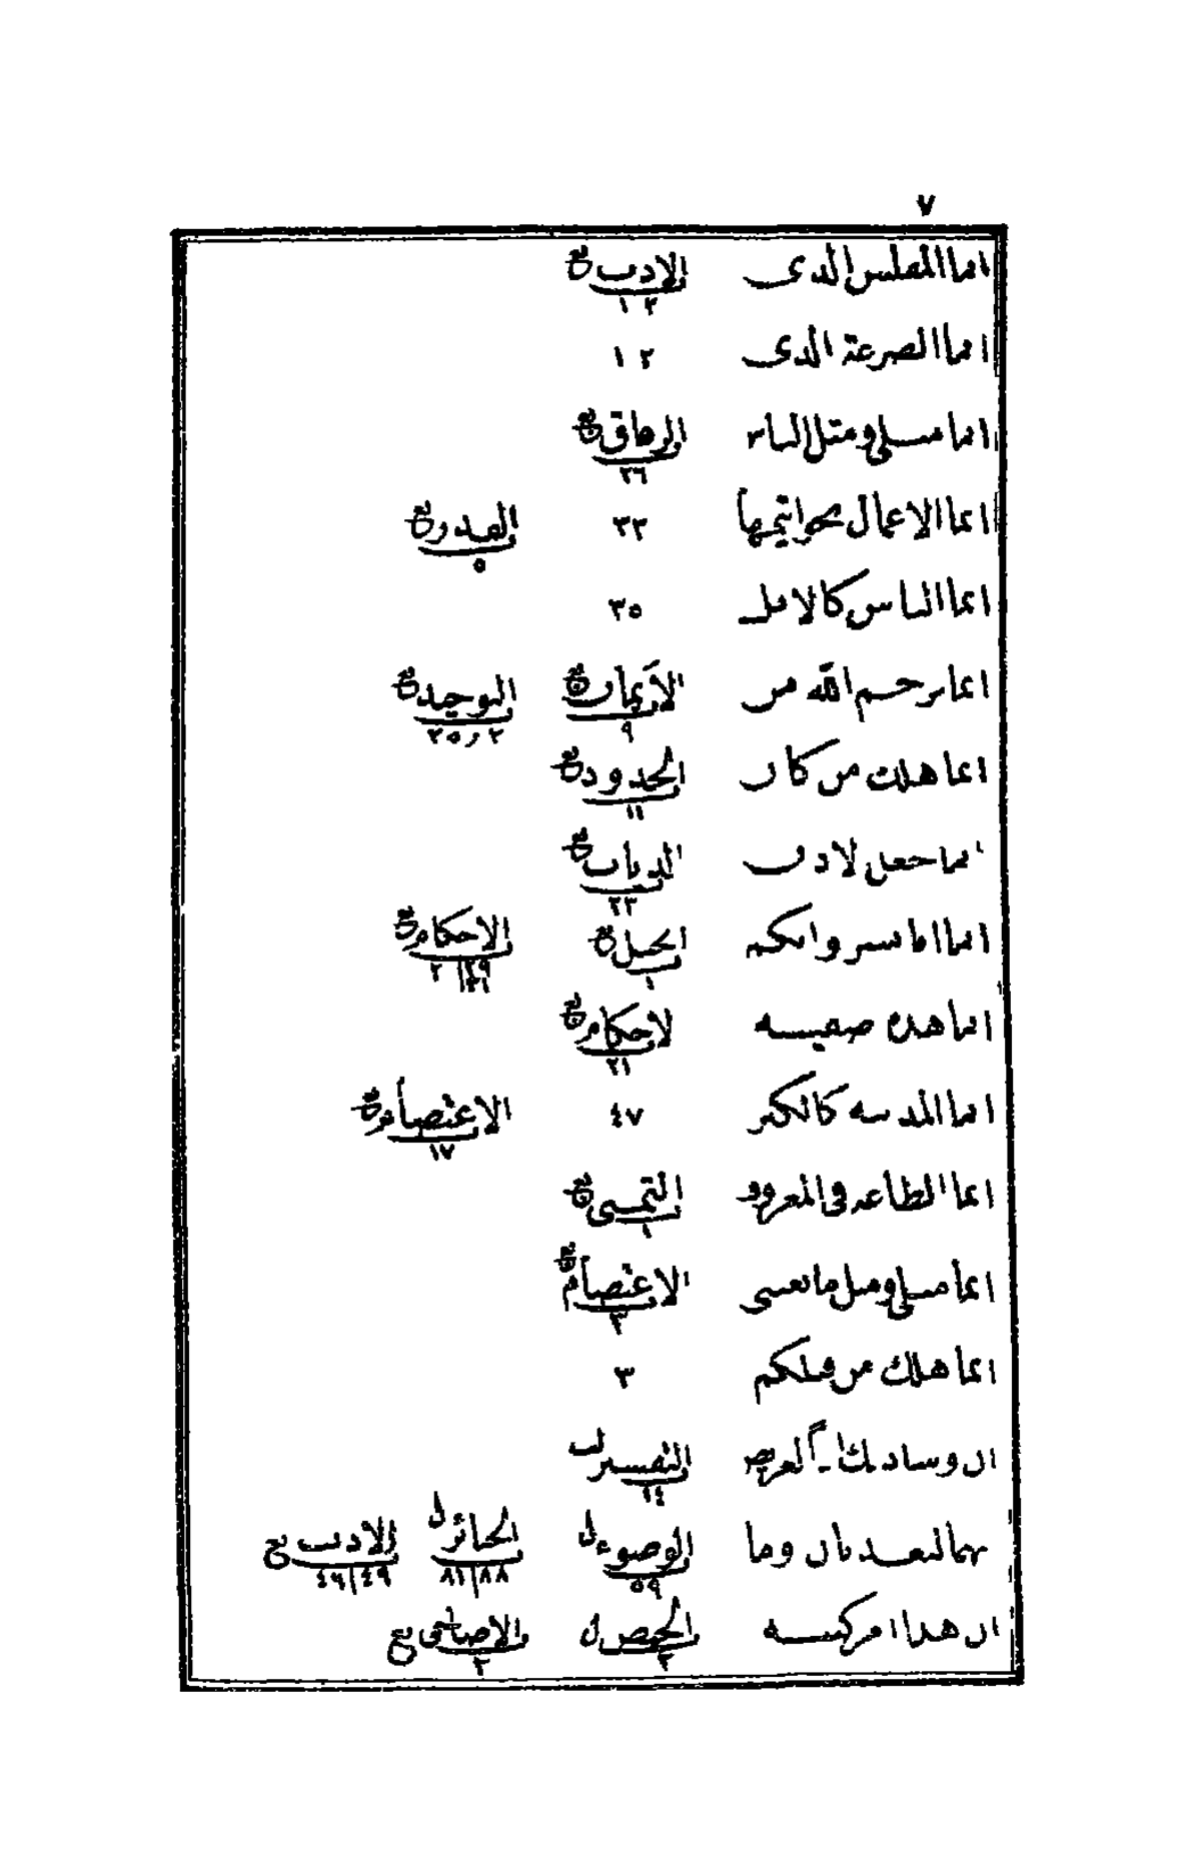 ٧
انما المفلس الذى الادب ع ١٠٢
انما الصرعة الذى ١٠٢
انما مثلى ومثل الناس الرقاق ع ٢٦
انما الاعمال بخواتيمها ٣٣ القدر ع ٥
انما الناس كالابل ٣٥
انما يرحم الله من الأيمان ع ٩ التوحيد ع ٢ و ٢٥
انما هلك من كان الحدود ع ١١
انما جعل الاذن الديات ع ٢٣
انما انا بشر وانكم الحيل ع ١٠ الاحكام ع ٢٠ ٢٩/٣١
انما هذه صفية الاحكام ع ٢١
انما المدينة كالكير ٤٧ الاعتصام ع ١٧
انما الطاعة فى المعروف التمنى ع ١
انما مثلى ومثل ما بعثنى الاعتصام ع ٣
انما هلك من قبلكم ٣
ان وسادك اذاً لعريض التفسير ل
انهما ليعذبان وما الوضوء ل ٥٩ الجنائز ل ٨١/٨٨ الادب ع ٤٦/٤٩
ان هذا امر كتبه الحيض ل الاضاحى ع ٣